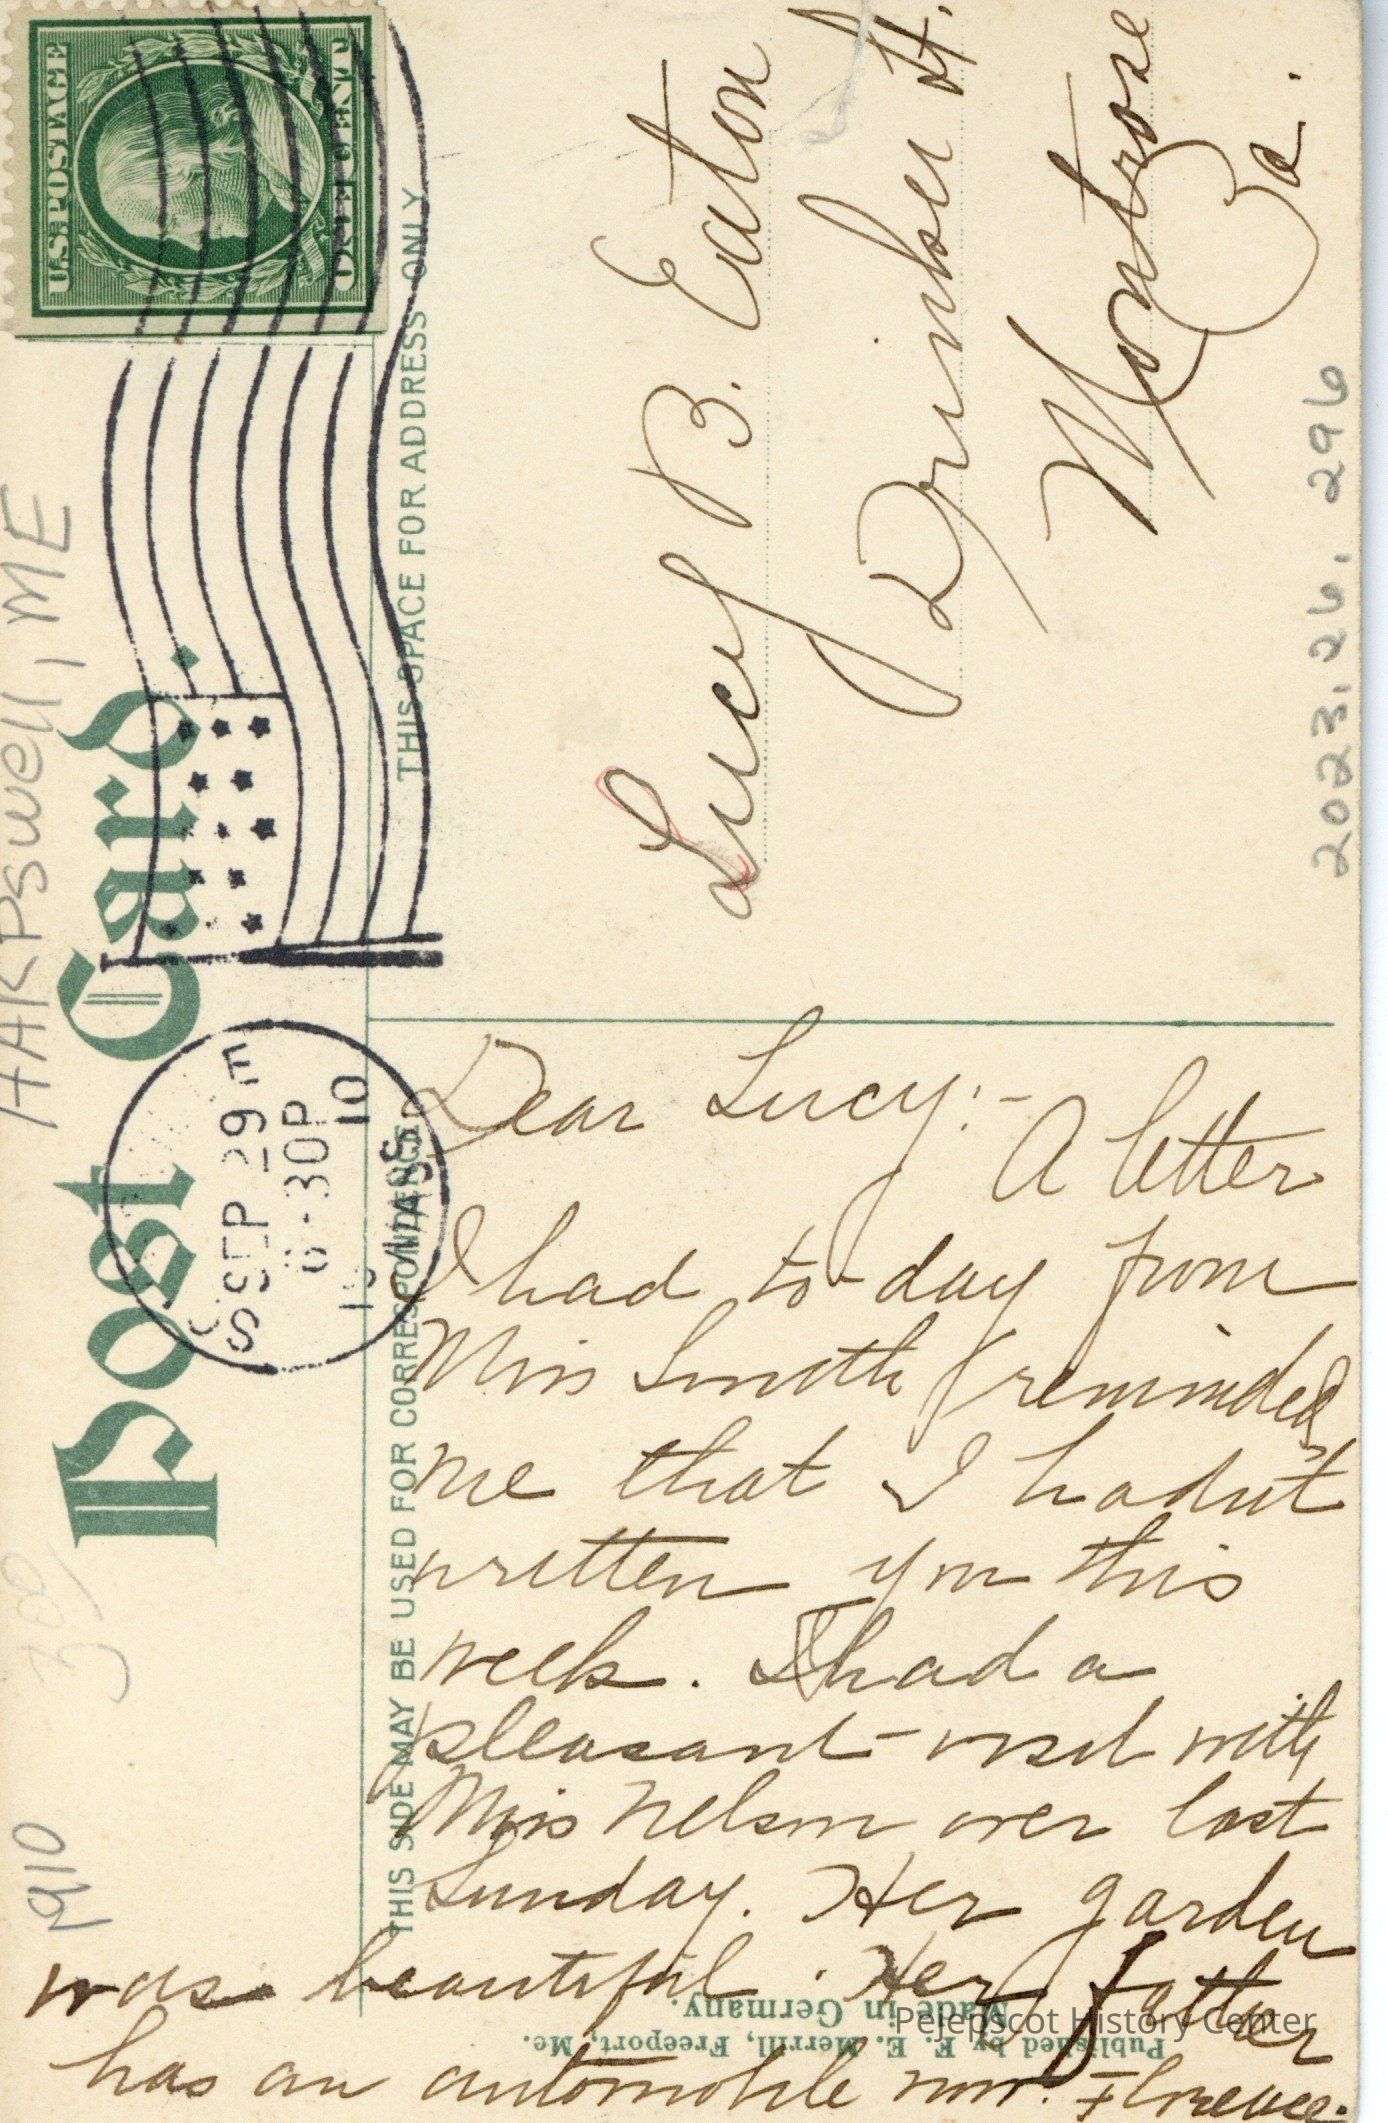 U.S. POSTAGE
ONE CENT
HARPSWELL, ME
Post Card.
SEP 29
30P
1910
MASS
THIS SPACE FOR ADDRESS ONLY
Lucy B. Eaton
Drinker St.
Montrose
Pa.
2023.26.296
THIS SIDE MAY BE USED FOR CORRESPONDENCE
Dear Lucy:-
A letter
I had to-day from
Miss Smith reminded
me that I hadn't
written you this
week. I had a
pleasant visit with
Miss Nelson over last
Sunday. Her garden
was beautiful. Her father
has an automobile now. Florence.
1910
Published by F. E. Merrill, Freeport, Me.
Made in Germany.
Pejepscot History Center